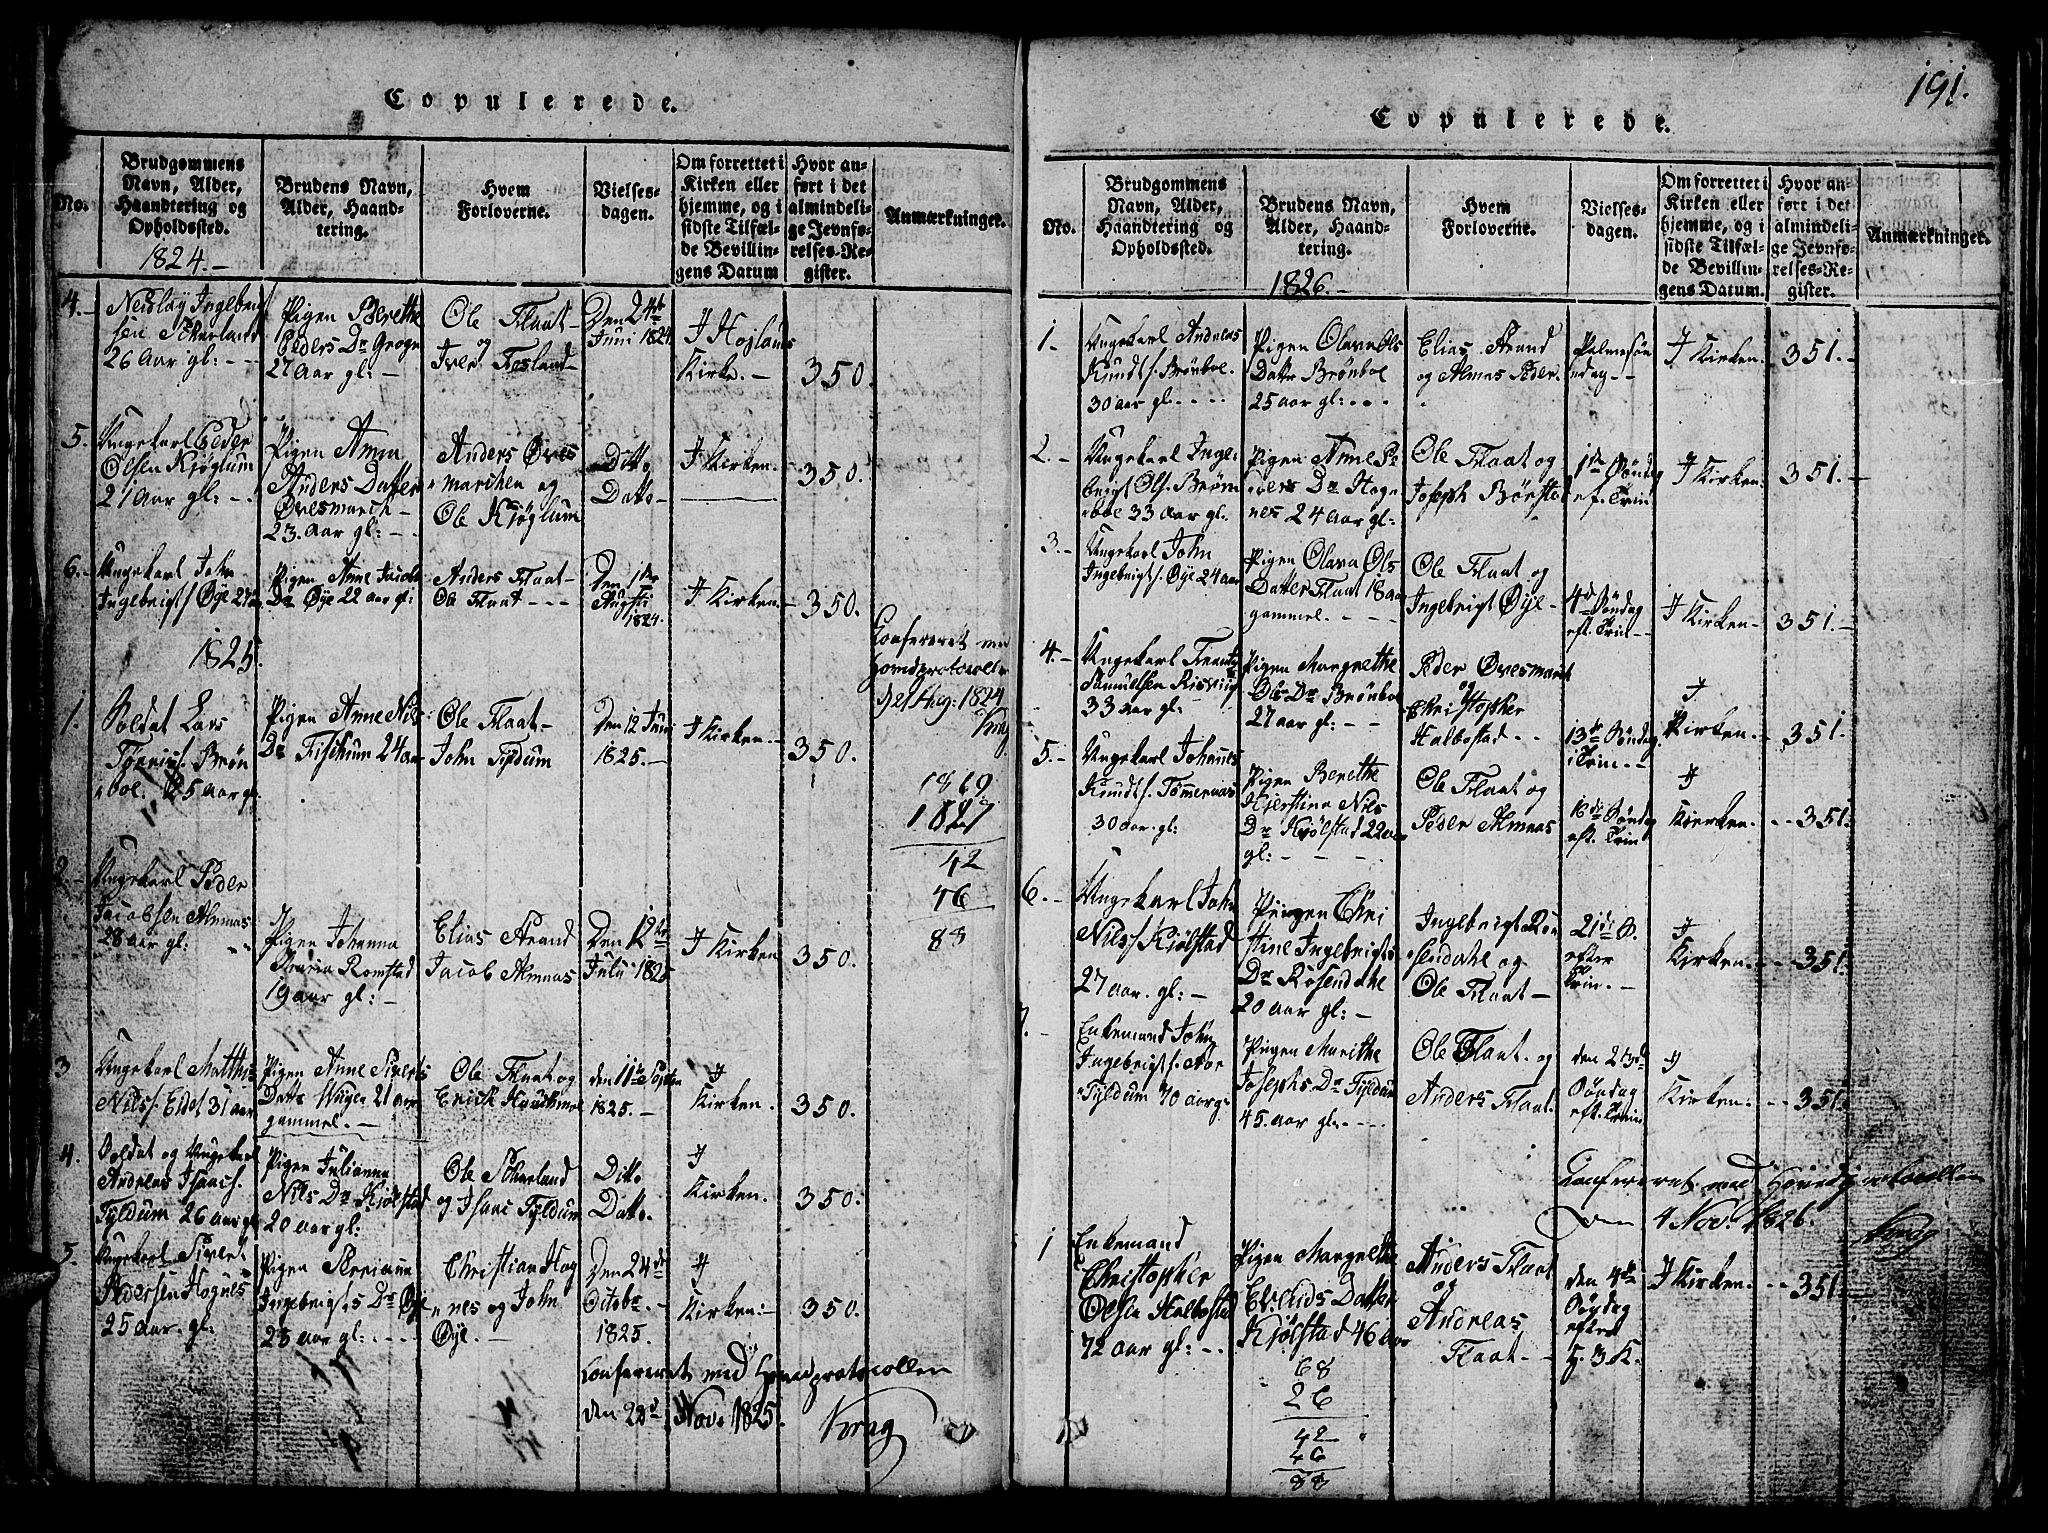 Copulerede.
No.
Brudgommens Navn, Alder, Haandtering og Opholdssted.
Brudens Navn, Alder, Haandtering.
Hvem Forloverne.
Vielsesdagen.
Om forrettet i Kirken eller hjemme, og i sidste Tilfælde Bevillingens Datum
Hvor anført i det almindelige Jevnførelses-Register.
Anmærkninger.
1824.-
4.-
26 Aar gl: - -
Pigen Berethe
Peders Dr
27 Aar gl: -
Ole Flaat
og
Iver Fosland
Den 24de
Juni 1824
I
Kirke. -
350.
5.
Ungekarl Peder
Olsen Kjøglum
21 Aar gl: - -
Pigen
Anders Datter
Øvesmarch -
23. Aar gl: - -
Anders Øves
marchen og
Ole Kjøglum
Ditto
Datto
I Kirken.
350.
6.-
Ungekarl John
Ingebrigts. Øye 27
Pigen Anne Jacobs
Dr Øye 22 aar gl:
Anders Flaat-
Ole Flaat - - -
Den 1de
Augsti
1824.
I Kirken. -
350.
Confereret med
Hovedprotocollen
1824
1825.
1.
Soldat Lars
Pigen Anne Nils
Dr 24 aar
Ole Flaat-
John Tyldum
Den 12 Juni
1825. -
I Kirken. -
350.
1869
1827
42
46
88
2.-
Ungekarl Peder
Jacobsen Almaas
28 aar gl:
Pigen Johanna
Maria Romstad
19 aar gl: -
Elias Strand
Jacob Almaas
Den 12te
Juli 1825
I Kirken
350.
3
Ungekarl Matthis
Nils. Eidet 31 aar
Pigen Anne Siverts
Datter 21 aar
gammel. -
Ole Flaat og
Erick
den 11te Septem
1825. -
I
Kirken.
350.
4.
Soldat og Ungekarl
Andreas Isaacs.
Tyldum 26 aar gl
Pigen Julianna
Nils Dr Kjølstad
20 aar gl:
Ole
og Isaac Tyldum
Ditto
Datto.
I
Kirken.
350.
5.
Ungekarl Sivert
Pedersen Hognes
25 aar. gl:
Pigen
Ingebrigts Dr Øye
23 aar gl: - - -
Christian Hog
nes og John
Øye. -
Den 24de
Octobr. -
1825.
I
Kirken: -
350.
Confereret med Hovedprotocollen
den 28d Nov. 1825. Krag
191.
Copulerede.
No.
Brudgommens Navn, Alder, Haandtering og Opholdssted.
Brudens Navn, Alder, Haandtering.
Hvem Forloverne.
Vielsesdagen.
Om forrettet i Kirken eller hjemme, og i sidste Tilfælde Bevillingens Datum.
Hvor anført i det almindelige Jevnførelses-Register.
Anmærkninger.
1826.-
1.
Ungekarl Andreas
Knudts. Brønboe
30 aar gl. - - -
Pigen Olava Ols
Datter Brønboe
25 aar gl: - - -
Elias Strand
og Almas Peder.
Palmesøn
dag - -
I Kirken -
351. -
2.-
Ungekarl Inge
brigt Ols. Brøn
boe 33 aar gl.
Pigen Anne Pe
ders Dr Hog
nes 24 aar gl:
Ole Flaat og
Joseph
1de Søndag
ef. Trin
I Kirken.
351. -
3.-
Ungekarl John
Ingebrigts. Øye 24 aar
Pigen Olava Ols
Datter Flaat 18 aar
gammel. - - -
Ole Flaat og
Ingebrigt Øye -
4de Søndag
eft. Trin -
I Kirken -
351. -
4.-
Ungekarl Frantz
33 aar gl: -
Pigen Margrethe
Ols Dr Brønboe
27 aar gl: - -
Peder Øvesmark
og
Christopher
Halbostad - -
13de Søndag
Trin. -
I
Kirken. -
351.
5.-
Ungekarl Johannes
Knudts.
30 aar. gl:
Pigen Berethe
Kjerstina Nils
Dr Kjølstad 22 aar
gl: - - -
Ole Flaat og
Peder Almaas
16de Søndag
eft. Trin
I
Kierken.
351.
6.-
Ungekarl John
Nils. Kjølstad
27 aar. gl: -
Pigen Chri
stine Ingebrigts
Dr Rosendahl
20 aar. gl: -
Ingebrigt Ro
sendahl og
Ole Flaat -
21de S.
efter
Trin. -
I
Kirken. - -
351.
7.-
Enkemand John
Ingebrigts.
Tyldum 70 aar gl
Pigen Marithe
Josephs Dr Tyldum
45. aar gl: - - -
Ole Flaat. og
Anders Flaat.
den 23de
Søndag
eft. Trin
I
Kirken.
351.
Confereret med Hovedprotocollen
den 4 Nov. 1826. Krag
1
Enkemand
Christopher
Olsen Halbostad
72 aar gl: - -
Pigen Margrethe
Datter
Kjølstad 46 aar
Anders Flaat
og
Andreas
Flaat - -
den 4de
Søndag
efter
H. 3 K.
I Kirken. - -
351. -
68
26
42
46
88